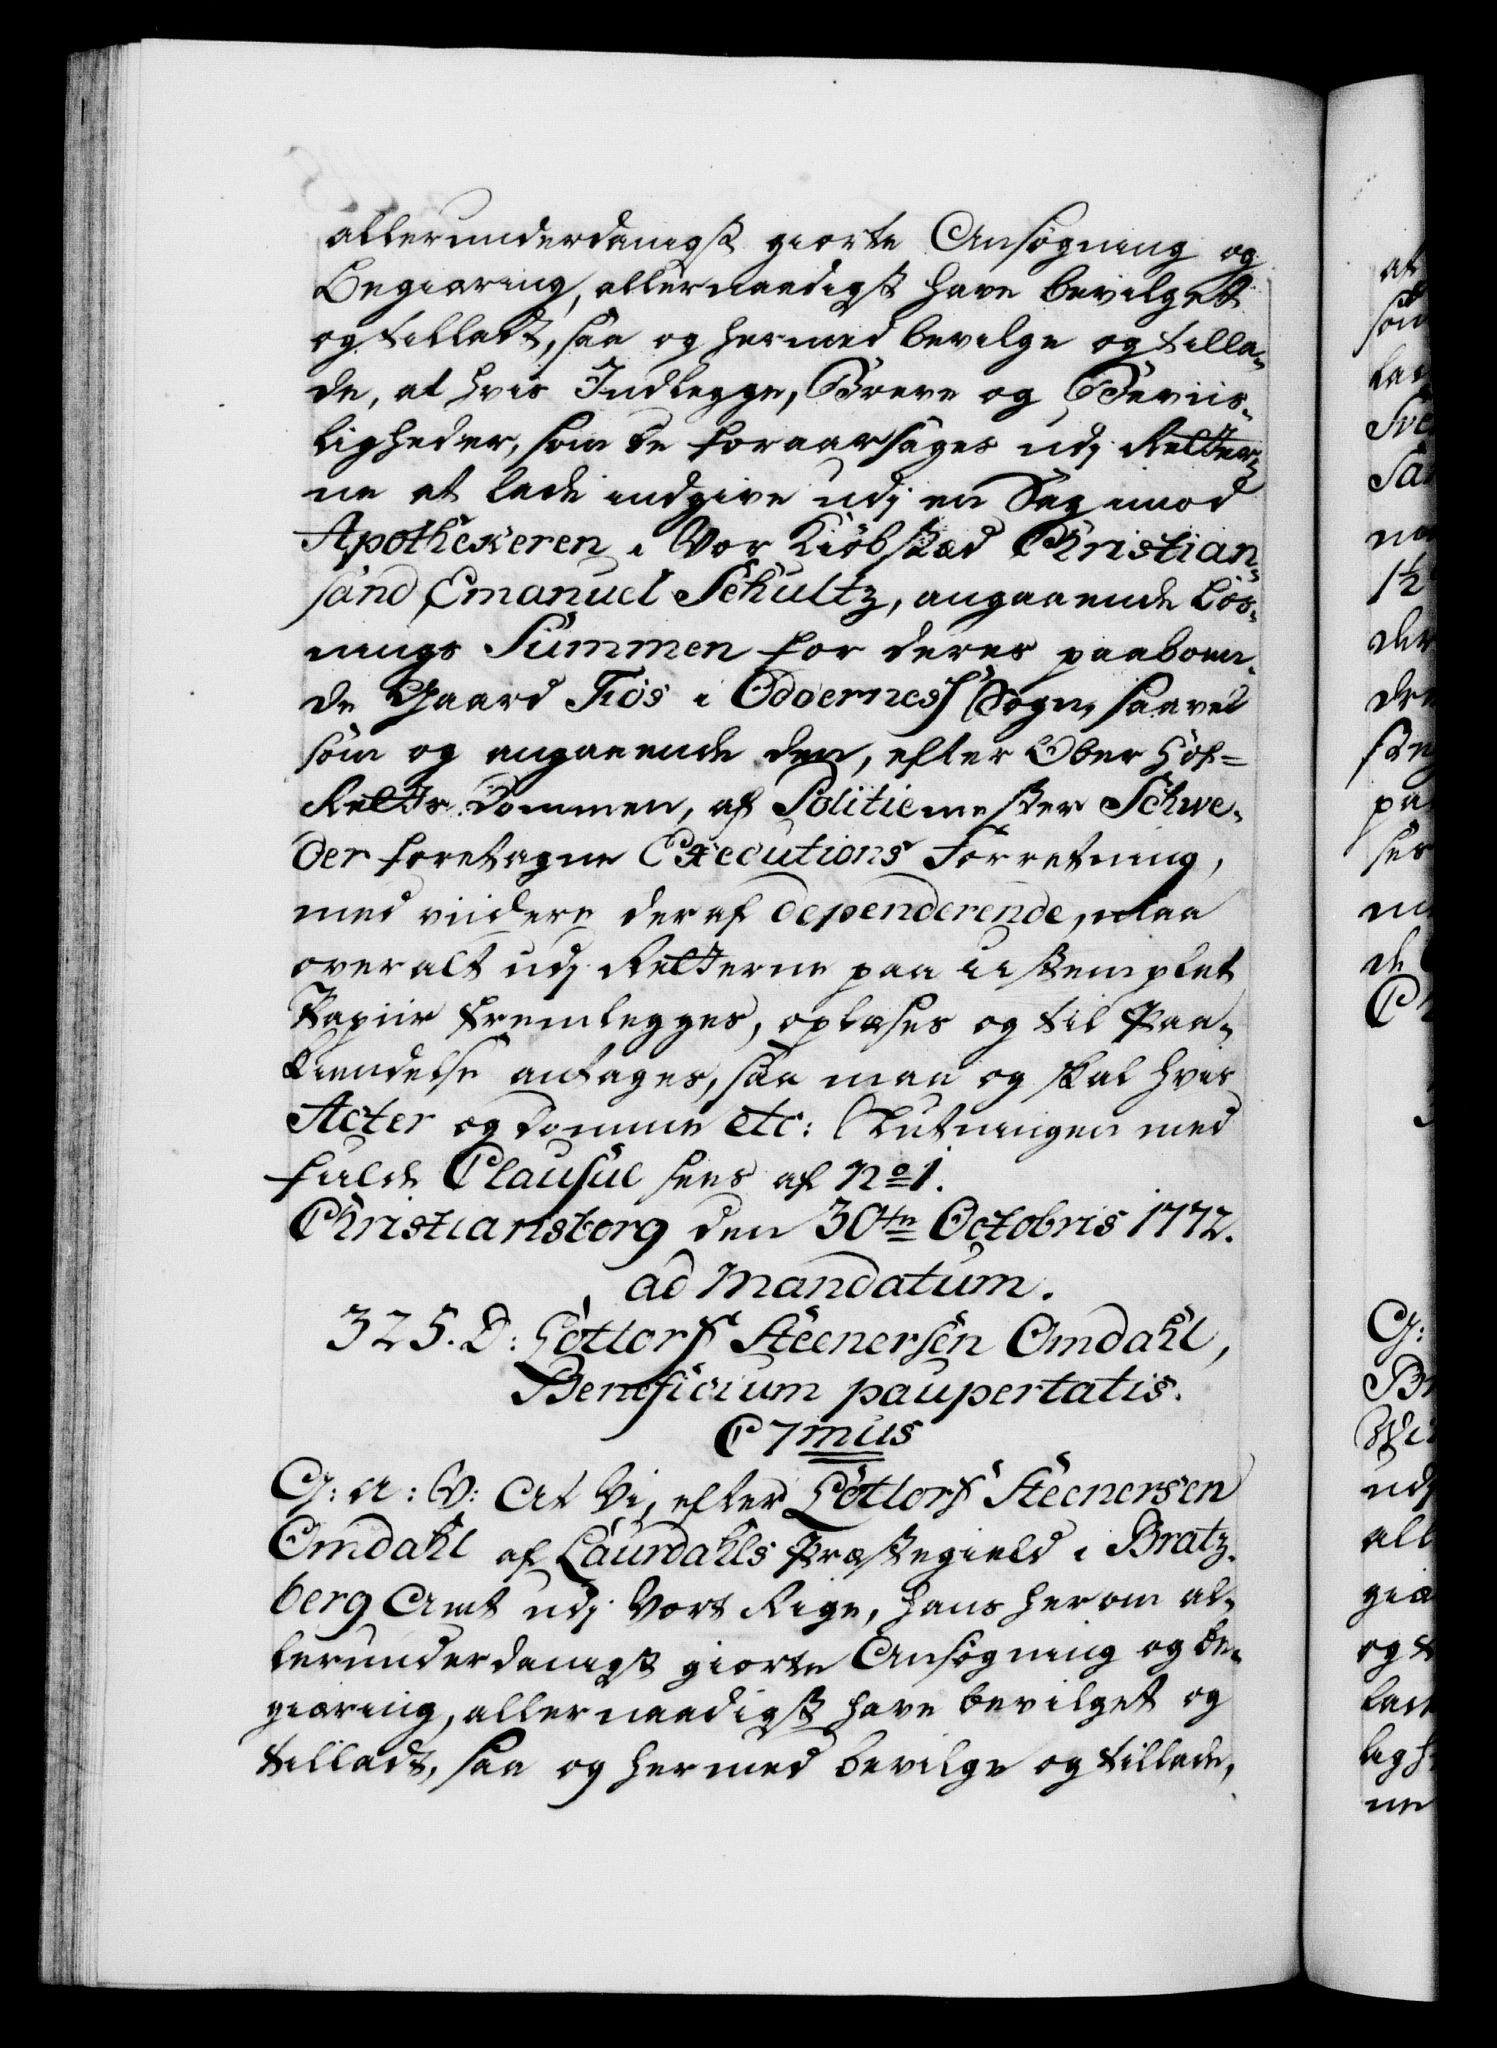 allerunderdanigst giorte Ansøgning og
Begiæring, allernaadigst have bevilget
og tilladt, saa og hermed bevilge og tilla-
de, at hvis Indlegge, Breve og Beviis-
ligheder, som de foraarsages udj Retter-
ne at lade indgive udj en Sag imod
Apothekeren i Vor Kiøbstæd Christian-
sand Emanuel Schultz, angaaende Løs-
nings Summen for deres paaboen-
de Gaard Fiøs i Oddernes Sogn, saavel
som og angaaende den, efter Ober Hof-
Retts Dommen, af Politiemester Schwe-
der foretagne Executions Forretning,
med viidere deraf dependerende, maa
overalt udj Retterne paa ustemplet
Papiir fremlegges, oplæses og til Paa-
kiendelse antages, saa maa og skal hvis
Acter og Domme etc: Slutningen med
fulde Clausul sees af No 1.
Christiansborg den 30te Octobris 1772.
ad Mandatum.
325. D: Gotlorf Steenersen Omdahl,
Beneficium paupertatis.
C 7mus
G: A: V: At Vi, efter Gotlorf Steenersen
Omdahl af Laurdahls Præstegield i Bratz-
berg Amt udj Vort Rige, hans herom al-
lerunderdanigst giorte Ansøgning og be-
giæring, allernaadigst have bevilget og
tilladt, saa og hermed bevilge og tillade,